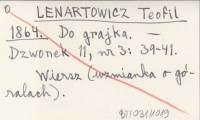 LENARTOWICZ Teofil
1864. Do grajka. —
Dzwonek 11, nr 3: 39-41.
Wiersz (wzmianka o gó-
ralach).